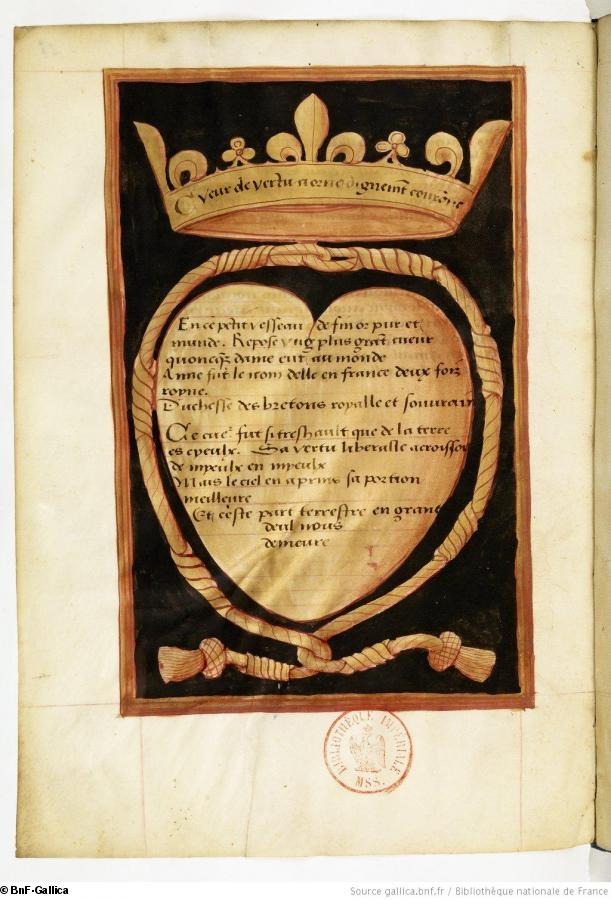 Cueur de vertu aorne dignemt couróne
En ce petit vesseau de fin or pur et
munde. Repose vng plus grāt cueur
quoncq̄z dame eut au monde
Anne fut le nom delle en france deux foiz
royne.
Duchesse des bretons royalle et souuerai
Ce cueʳ fut si treshault que de la terre
es cyeulx. Sa vertu liberalle acroissoi
de myeulx en myeulx
Mais le ciel en a prins sa portion
meilleure
Et ceste part terrestre en grant
deul nous
demeure
BIBLIOTHÈQUE IMPÉRIALE
MSS.
© BnF-Gallica
Source gallica.bnf.fr / Bibliothèque nationale de France